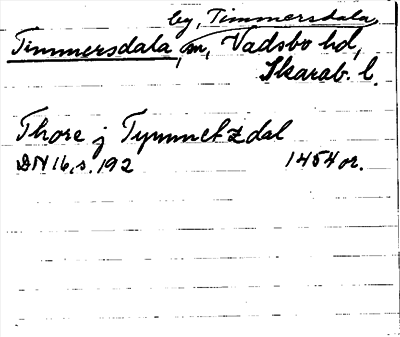 by, Timmersdala
Timmersdala, sn, Vadsbo hd,
Skarab. l.
Thore j Tymmetzdal
DN 16, s. 192 1454 or.